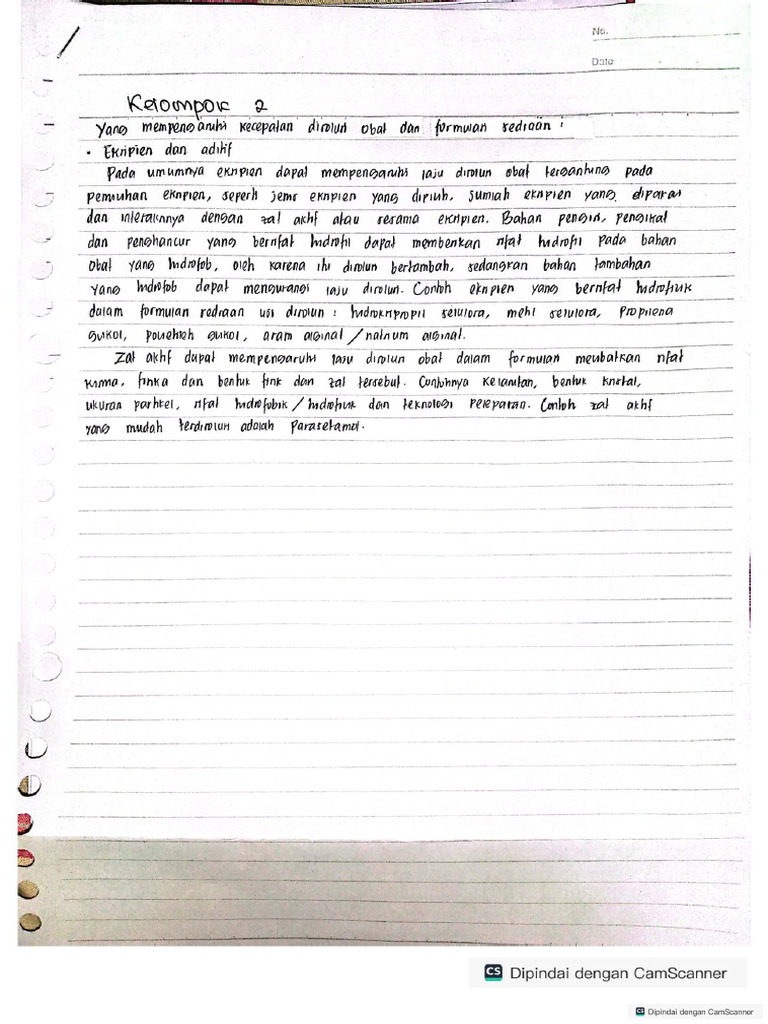 No.
Date
Kelompok 2
Yang mempengaruhi kecepatan disolusi obat dari formulasi sediaan :
• Eksipien dan aditif
Pada umumnya eksipien dapat mempengaruhi laju disolusi obat tergantung pada
pemilihan eksipien, seperti jenis eksipien yang dipilih, jumlah eksipien yang dipakai
dan interaksinya dengan zat aktif atau sesama eksipien. Bahan pengisi, pengikat
dan penghancur yang bersifat hidrofil dapat memberikan sifat hidrofil pada bahan
obat yang hidrofob, oleh karena itu disolusi bertambah, sedangkan bahan tambahan
yang hidrofob dapat mengurangi laju disolusi. Contoh eksipien yang bersifat hidrofilik
dalam formulasi sediaan uji disolusi : hidroksipropil selulosa, metil selulosa, propilena
glikol, polietilen glikol, asam alginat / natrium alginat.
Zat aktif dapat mempengaruhi laju disolusi obat dalam formulasi melibatkan sifat
kimia, fisika dan bentuk fisik dari zat tersebut. Contohnya kelarutan, bentuk kristal,
ukuran partikel, sifat hidrofobik / hidrofilik dan teknologi pelepasan. Contoh zat aktif
yang mudah terdisolusi adalah parasetamol.
CS Dipindai dengan CamScanner
CS Dipindai dengan CamScanner